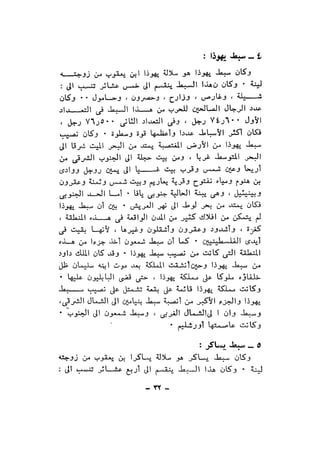 ٤ ــ سبط يهوذا :
وكان سبط يهوذا هو سلالة يهوذا ابن يعقوب من زوجته
ليئة • وكان هذا السبط ينقسم الى خمس عشائر تنسب الى :
شيلـــة ، وفارص ، وزارح ، وحصرون ، وحامول • • وكان
عدد الرجال الصالحين للحرب من هذا السبط فى التعداد
الأول ٧٤٦٠٠ رجل ، وفى التعداد الثانى ٧٦٥٠٠ رجل ،
فكان أكثر الأسباط عددا وأعظمها قوة وسطوة • وكان نصيب
سبط يهوذا من الأرض المغتصبة يمتد من البحر الميت شرقا الى
البحر المتوسط غربا ، ومن بيت حجلة الى الجنوب الشرقى من
أريحا وعين شمس وقرب بيت لحم
من هنوم ومياه نفتوح وقرية يعاريم وبيت شمس وتمنة وعقرون
ويبنيئيل ، وهى يبنة الحالية جنوبى يافا • أمــا الحــد الجنوبى
فكان يمتد من بحر لوط الى نهر العريش • بيد أن سبط يهوذا
لم يتمكن من امتلاك كثير من المدن الواقعة فى هــذه المنطقة ،
كغزة ، وأشدود ، وعقرون وأشقلون وغيرها ، لأنهــا بقيت فى
أيدى الفلسطينيين • كما أن سبط شمعون أخذ جزءا من هــذه
المنطقة التى كانت من نصيب سبط يهوذا • وقد كان الملك داود
من سبط يهوذا
خلفاؤه ملوكا على مملكة يهوذا ، حتى قضى البابليون عليها •
وكانت مملكة يهوذا قائمة على بقعة تشتمل على نصيب سبــط
يهوذا والجزء الأكبر من أنصبة سبط بنيامين الى الشمال الشرقى،
وسبط دان الى الشمال الغربى ، وسبط شمعون الى الجنوب •
وكانت عاصمتها أورشليم •
٥ ــ سبط يساكر :
وكان سبط يساكر هو سلالة يساكر ابن يعقوب من زوجته
ليئة • وكان هذا السبط ينقسم الى أربع عشــائر تنسب الى :
ــ ٣٢ ــ